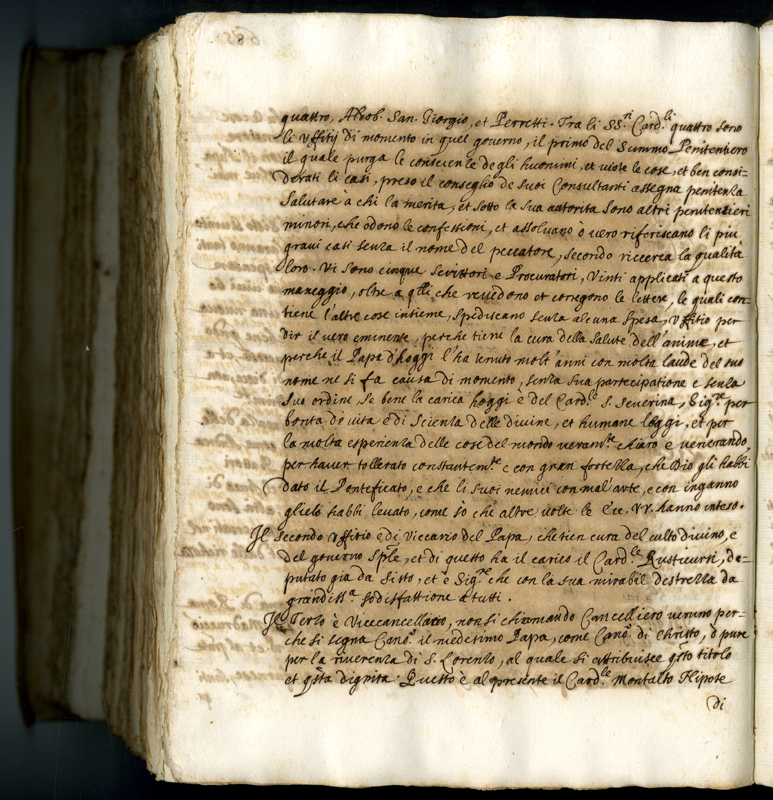 quattro, Aldob. San. Giorgio, et Perretti. Tra li SS.ri Card.li quattro sono
li Uffitij di momento in quel governo, il primo del Summo Penitentiero
il quale purga le conscienze degli huomini, et viste le cose, et ben consi=
derati li casi, preso il conseglio de suoi Consultanti assegna penitenza
salutare à chi la merita, et sotto la sua autorita sono altri penitentieri
minori, che odono le confessioni, et assoluano ò vero riferiscano li più
graui casi senza il nome del peccatore, secondo riccerca la qualità
loro. Vi sono cinque Scrittori e Procuratori, Vinti applicati a questo
maneggio, oltre a q.lli che reuedono et corregono le lettere, le quali con=
tiene l'altre cose insieme, spediscano senza alcuna spesa, Uffitio per
dir il vero eminente, perche tiene la cura della salute dell'anime, et
perche il Papa d'hoggi l'ha tenuto molt'anni con molta laude del suo
nome ne si fa causa di momento, senza sua partecipatione e senza
suo ordine, se bene la carica hoggi è del Card.le S. Severina, Sig.re per
bontà di vita è di scienza delle divine, et humane leggi, et per
la molta esperienza delle cose del mondo veram.te chiaro e venerando,
per hauer tollerato constantem.te e con gran fortezza, che Dio gli habbi
dato il Pontificato, e che li suoi nemici con mal'arte, e con inganno
glielo habbi leuato, come so che altre uolte le Ecc. VV. hanno inteso.
Il secondo Uffitio è di Viccario del Papa, che tien cura del culto divino, e
del governo sp.le, et di questo ha il carico il Card.le Rusticucci, de=
putato gia da Sisto, et è Sig.re che con la sua mirabil destrezza da
grandiss.a sodisfattione a tutti.
Il Terzo è Vicecancellario, non si chiamando Cancelliero veruno per=
che si segna Canc.o il medesimo Papa, come Canc.o di Christo, ò pure
per la riverenza di S. Lorenzo, al quale si attribuisce q.sto titolo
et q.sta dignita. Questo è al presente il Card.le Montalto Nipote
di